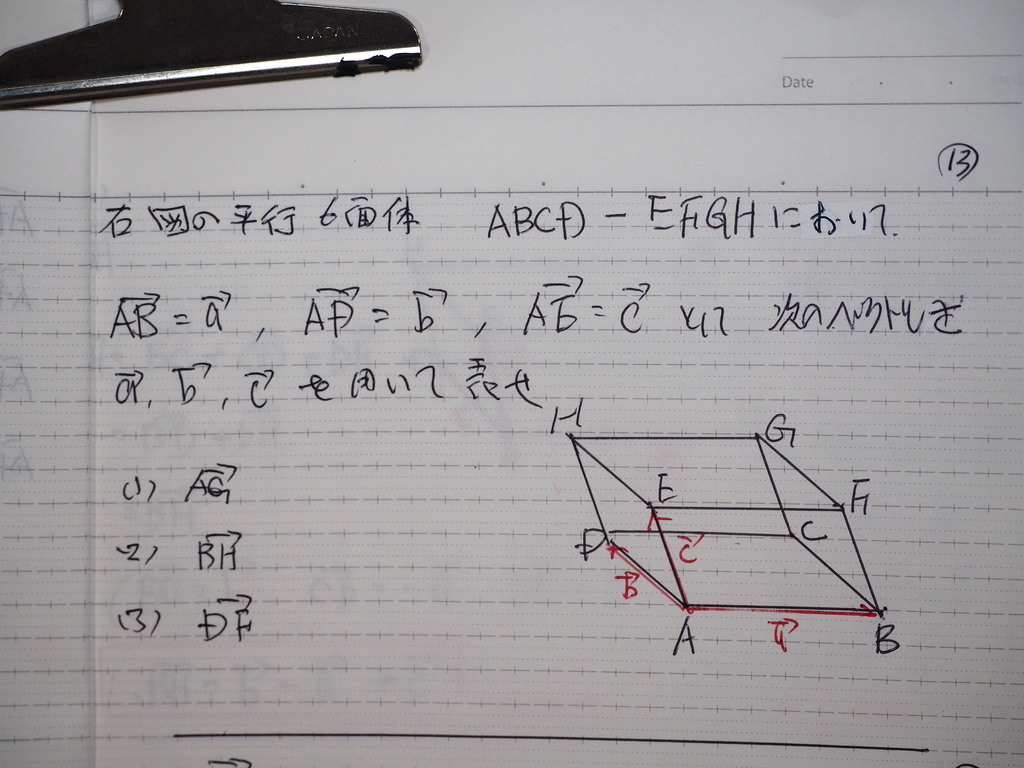 JAPAN
Date
⑬
右図の平行6面体 ABCD - EFGHにおいて.
AB→ = a→, AD→ = b→, AE→ = c→ として 次のベクトルを
a→, b→, c→ を用いて表せ
(1) AG→
(2) BH→
(3) DF→
H
G
E
F
D
C
c→
b→
A
a→
B